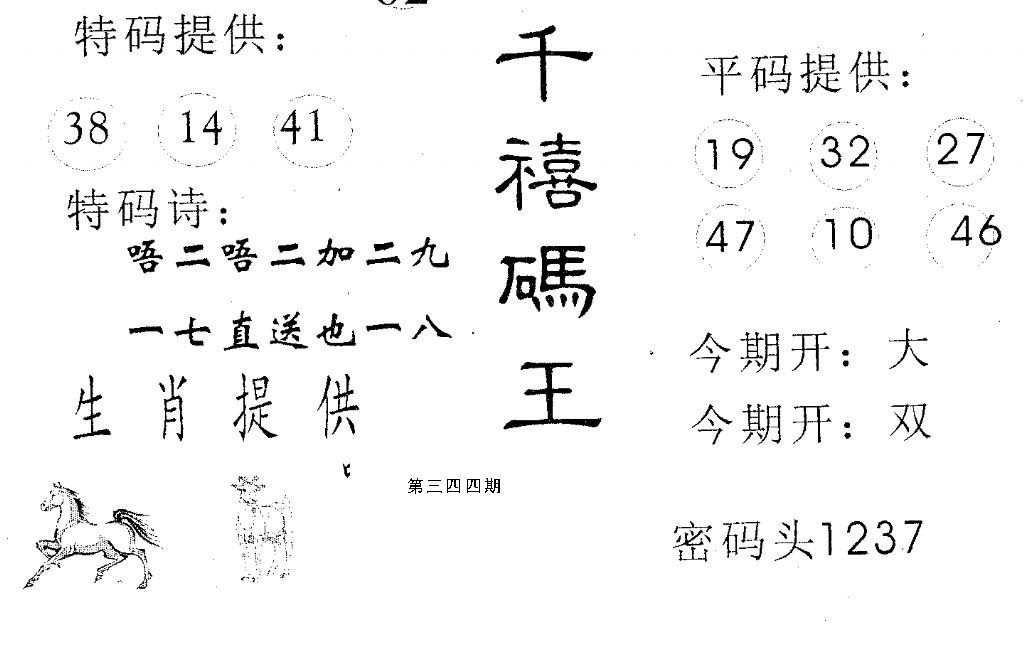 特码提供：
38 14 41
特码诗：
唔二唔二加二九
一七直送也一八
生肖提供
千禧碼王
第三四四期
平码提供：
19 32 27
47 10 46
今期开：大
今期开：双
密码头1237